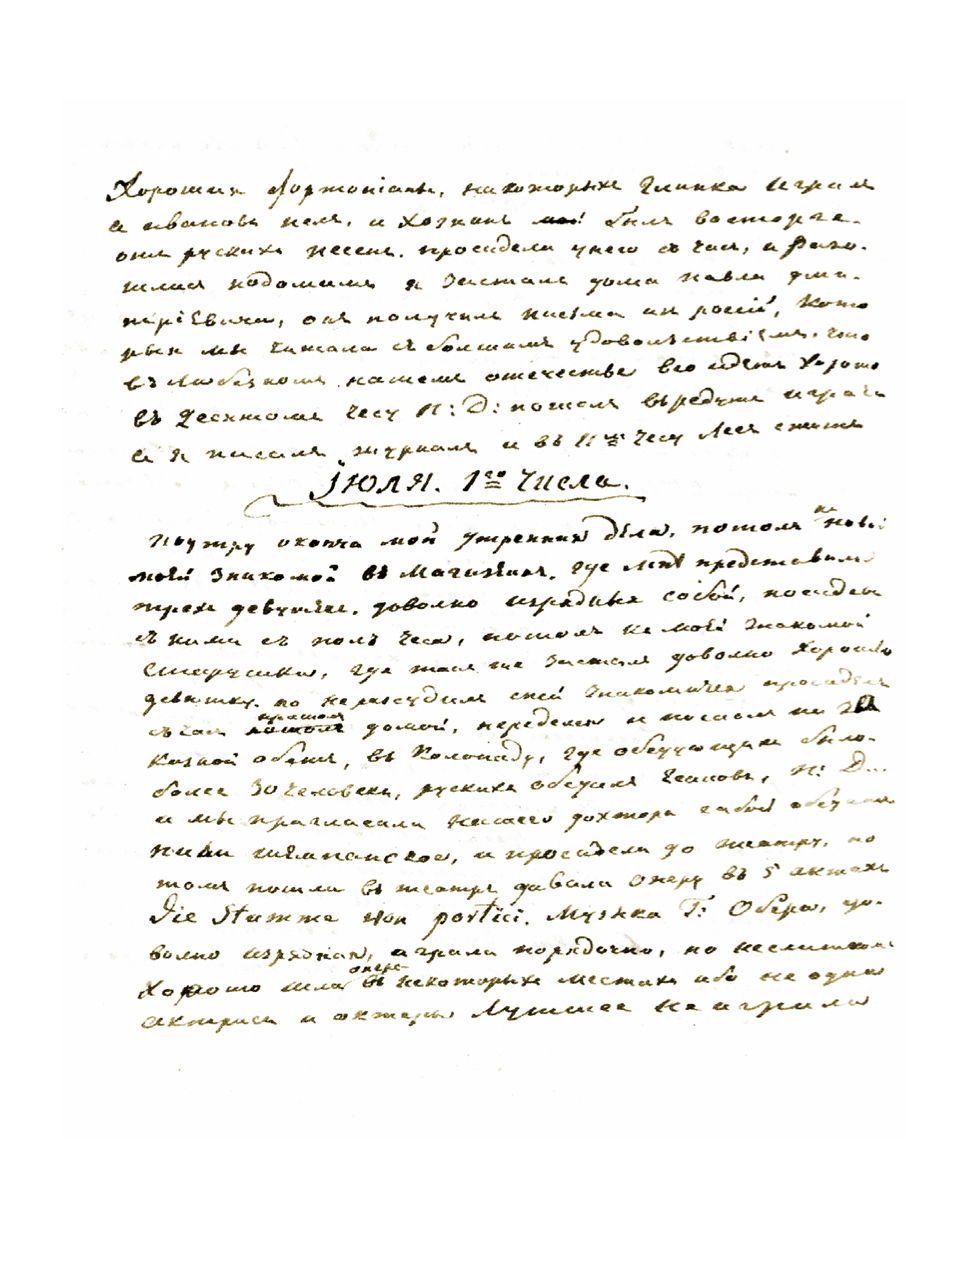 Хорошия фортопiаны, накоторыхъ Глинка игралъ
а ивановъ пелъ, и хозяинъ былъ восторге.
онъ рускихъ песенъ. просидели унего съ часъ, и разо-
шлись подомамъ я засталъ дома павла дми-
трiевича, онъ получилъ письма изъ россiи, кото
рыя мы читали съ большимъ удовольствiемъ. что
въ любезномъ нашемъ отечестве все идетъ хорошо
въ десятомъ часу П: Д: пошолъ въредутъ играть
а я писалъ журналъ и въ 11м часу легъ спать
iюля. 1го числа.
поутру оконча мои утренния дѣла, пошолъ кь новой
моей знакомой въ магазинъ, где мнѣ представили
трехъ девушкъ. доволно изрядныя собой, посидевъ
съ ними съ полъ часа, пошолъ къ моей знакомой
старушки, где тамъ же засталъ доволно хорошую
девюшку. по нерассудилъ сней знакомится просиделъ
съ часъ пришолъ домой, переделся и пошолъ на
казной обедъ, въ Колонаду, где обедующихъ было-
более 30 человекъ, рускихъ обедалъ Чесновъ, П: Д...
и мы пригласили нашего доктора ссобой обедать
пили шемпанское, и просидели до театру, по
томъ пошли въ театръ давали оперу въ 5 актахъ
die Stumme von portici. Музыка Г: Обера, до-
волно изрядная, играли порядочно, но неслишкомъ
хорошо шла опера въ некоторыхъ местахъ ибо не одна
актриса и актеры лутшее не играли